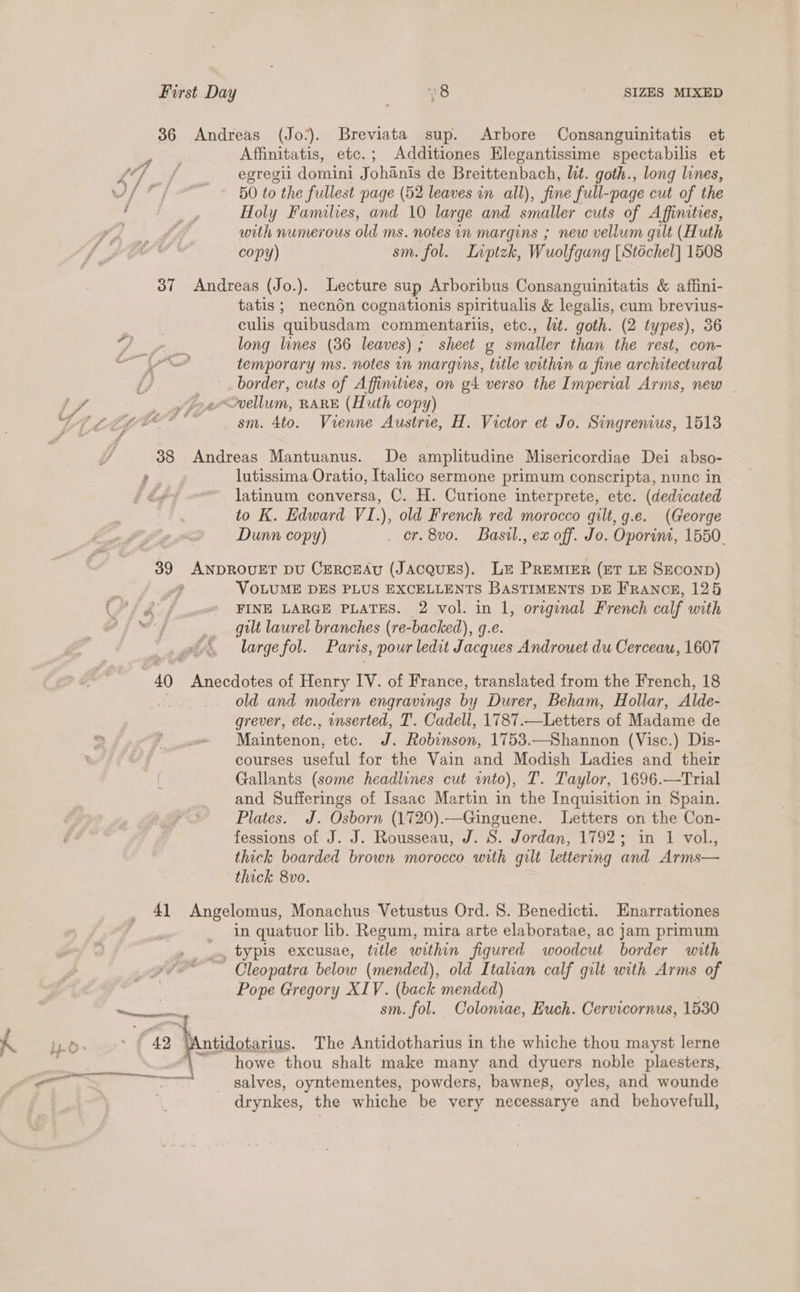 First Day 8 SIZES MIXED
36 Andreas (Jo.). Breviata sup. Arbore Consanguinitatis et
Affinitatis, etc.; Additiones Elegantissime spectabilis et
egregii domini Johānis de Breittenbach, lit. goth., long lines,
50 to the fullest page (52 leaves in all), fine full-page cut of the
Holy Families, and 10 large and smaller cuts of Affinities,
with numerous old ms. notes in margins; new vellum gilt (Huth
copy) sm. fol. Liptzk, Wuolfgang [Stöchel] 1508
37 Andreas (Jo.). Lecture sup Arboribus Consanguinitatis & affini-
tatis; necnón cognationis spiritualis & legalis, cum brevius-
culis quibusdam commentariis, etc., lit. goth. (2 types), 36
long lines (36 leaves); sheet g smaller than the rest, con-
temporary ms. notes in margins, title within a fine architectural
border, cuts of Affinities, on g4 verso the Imperial Arms, new
vellum, RARE (Huth copy)
sm. 4to. Vienne Austrie, H. Victor et Jo. Singrenius, 1513
38 Andreas Mantuanus. De amplitudine Misericordiae Dei abso-
lutissima Oratio, Italico sermone primum conscripta, nunc in
latinum conversa, C. H. Curione interprete, etc. (dedicated
to K. Edward VI.), old French red morocco gilt, g.e. (George
Dunn copy) cr. 8vo. Basil., ex off. Jo. Oporini, 1550
39 ANDROUET DU CERCEAU (JACQUES). LE PREMIER (ET LE SECOND)
VOLUME DES PLUS EXCELLENTS BASTIMENTS DE FRANCE, 125
FINE LARGE PLATES. 2 vol. in 1, original French calf with
gilt laurel branches (re-backed), g.e.
large fol. Paris, pour ledit Jacques Androuet du Cerceau, 1607
40 Anecdotes of Henry IV. of France, translated from the French, 18
old and modern engravings by Durer, Beham, Hollar, Alde-
grever, etc., inserted, T. Cadell, 1787.—Letters of Madame de
Maintenon, etc. J. Robinson, 1753.—Shannon (Visc.) Dis-
courses useful for the Vain and Modish Ladies and their
Gallants (some headlines cut into), T. Taylor, 1696.—Trial
and Sufferings of Isaac Martin in the Inquisition in Spain.
Plates. J. Osborn (1720).—Ginguene. Letters on the Con-
fessions of J. J. Rousseau, J. S. Jordan, 1792; in 1 vol.,
thick boarded brown morocco with gilt lettering and Arms—
thick 8vo.
41 Angelomus, Monachus Vetustus Ord. S. Benedicti. Enarrationes
in quatuor lib. Regum, mira arte elaboratae, ac jam primum
typis excusae, title within figured woodcut border with
Cleopatra below (mended), old Italian calf gilt with Arms of
Pope Gregory XIV. (back mended)
sm. fol. Coloniae, Euch. Cervicornus, 1530
42 Antidotarius. The Antidotharius in the whiche thou mayst lerne
howe thou shalt make many and dyuers noble plaesters,
salves, oyntementes, powders, bawnes, oyles, and wounde
drynkes, the whiche be very necessarye and behovefull,